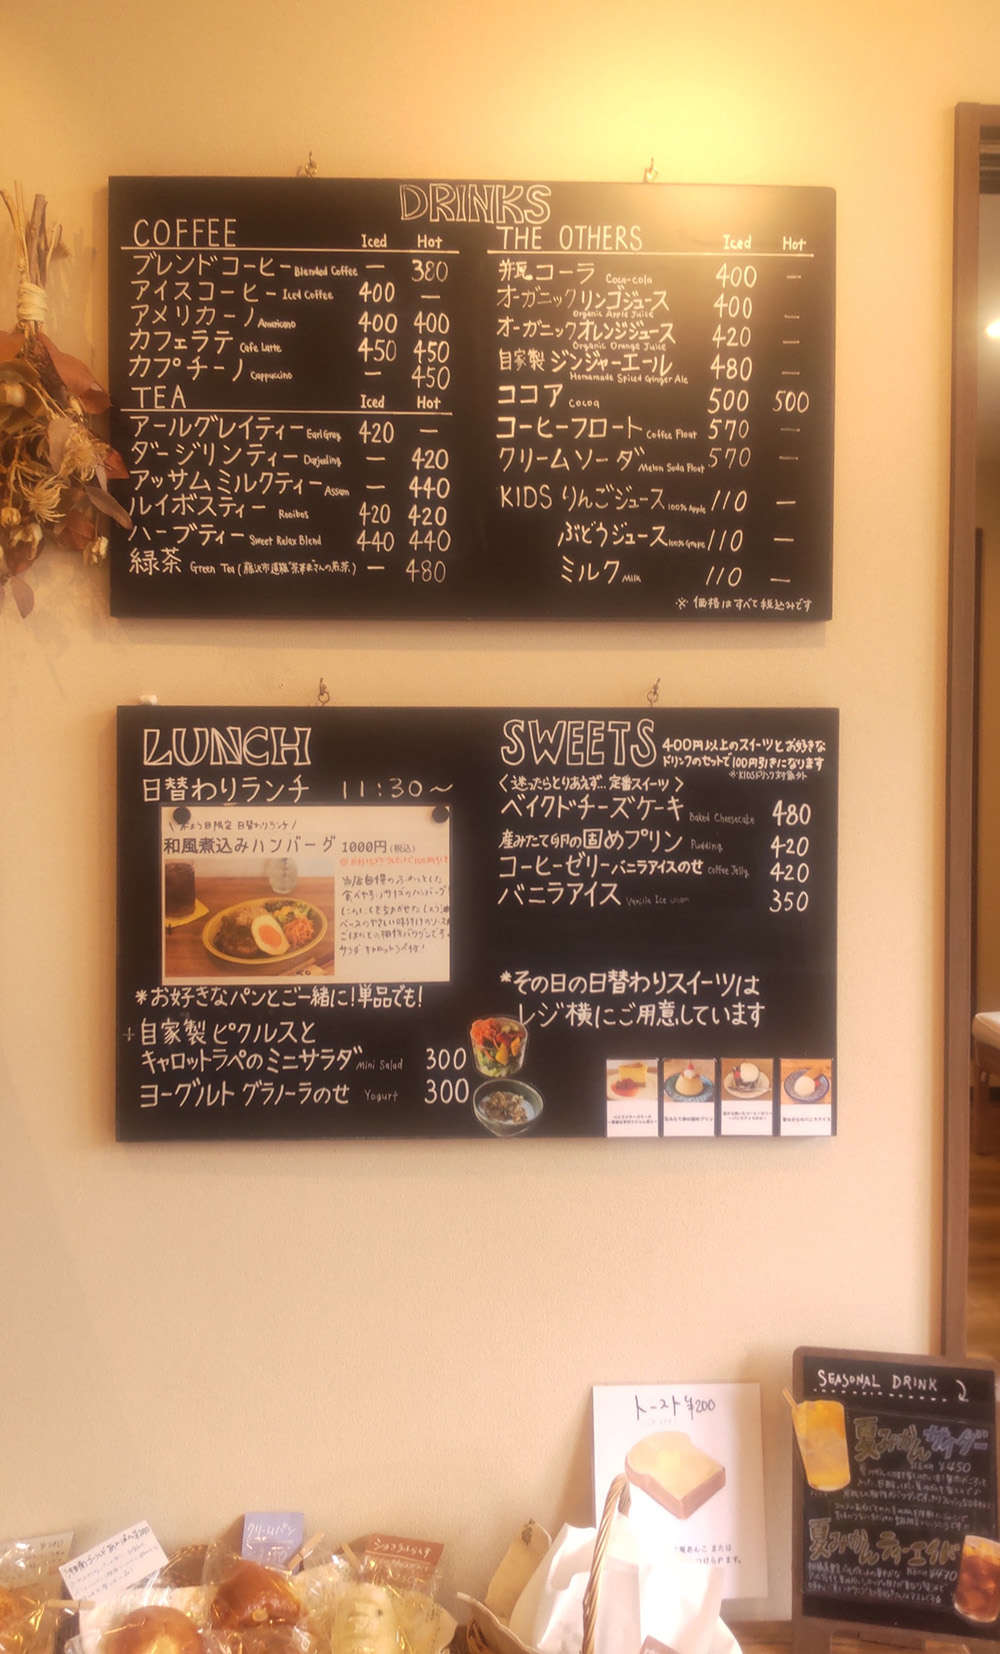 DRINKS
COFFEE Iced Hot
ブレンドコーヒー Blended Coffee — 380
アイスコーヒー Iced Coffee 400 —
アメリカーノ Americano 400 400
カフェラテ Cafe Latte 450 450
カプチーノ Cappuccino — 450
TEA Iced Hot
アールグレイティー Earl Grey 420 —
ダージリンティー Darjeeling — 420
アッサムミルクティー Assam — 440
ルイボスティー Rooibos 420 420
ハーブティー Sweet Relax Blend 440 440
緑茶 Green Tea — 480
THE OTHERS Iced Hot
コーラ Coca-cola 400 —
オーガニックリンゴジュース Organic Apple Juice 400 —
オーガニックオレンジジュース Organic Orange Juice 420 —
自家製ジンジャーエール Homemade Spiced Ginger Ale 480 —
ココア Cocoa 500 500
コーヒーフロート Coffee Float 570 —
クリームソーダ Melon Soda Float 570 —
KIDS りんごジュース 100% Apple 110 —
ぶどうジュース 100% Grape 110 —
ミルク Milk 110 —
※価格はすべて税込みです
LUNCH
日替わりランチ 11:30〜
日替わりランチ
和風煮込みハンバーグ 1000円(税込)
*お好きなパンとご一緒に!単品でも!
+自家製ピクルスと
キャロットラペのミニサラダ Mini Salad 300
ヨーグルト グラノーラのせ Yogurt 300
SWEETS
400円以上のスイーツとお好きな
ドリンクのセットで100円引きになります
※KIDSドリンク対象外
〈迷ったらとりあえず…定番スイーツ〉
ベイクドチーズケーキ Baked Cheesecake 480
産みたて卵の固めプリン Pudding 420
コーヒーゼリーバニラアイスのせ Coffee Jelly 420
バニラアイス 350
*その日の日替わりスイーツは
レジ横にご用意しています
トースト ¥200
SEASONAL DRINK
夏みかんサイダー
¥450
夏みかんティーエイド
¥470
クリームパン